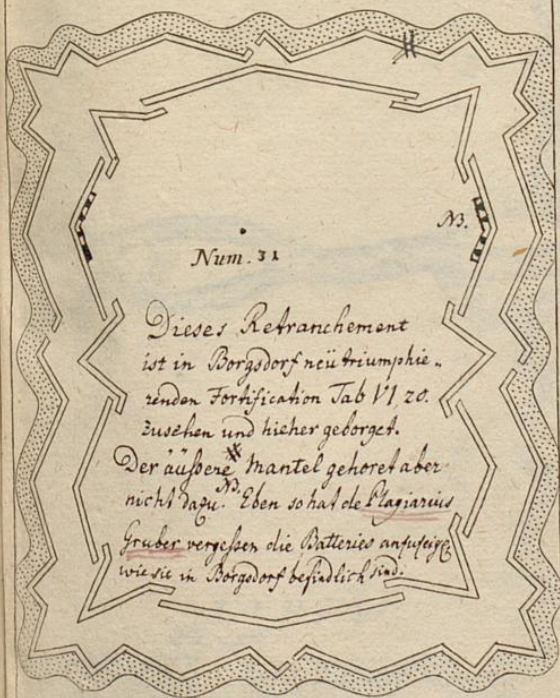 #
NB.
Num. 31
Dieses Retranchement
ist in Borgsdorf neü triumphie„
renden Fortification Tab VI 20.
zusehen und hieher geborget.
Der äußere # Mantel gehoret aber
nicht dazu. NB. Eben so hat de Plagiarius
Gruber vergeßen die Batteries
wie sie in Borgsdorf befindlich sind.